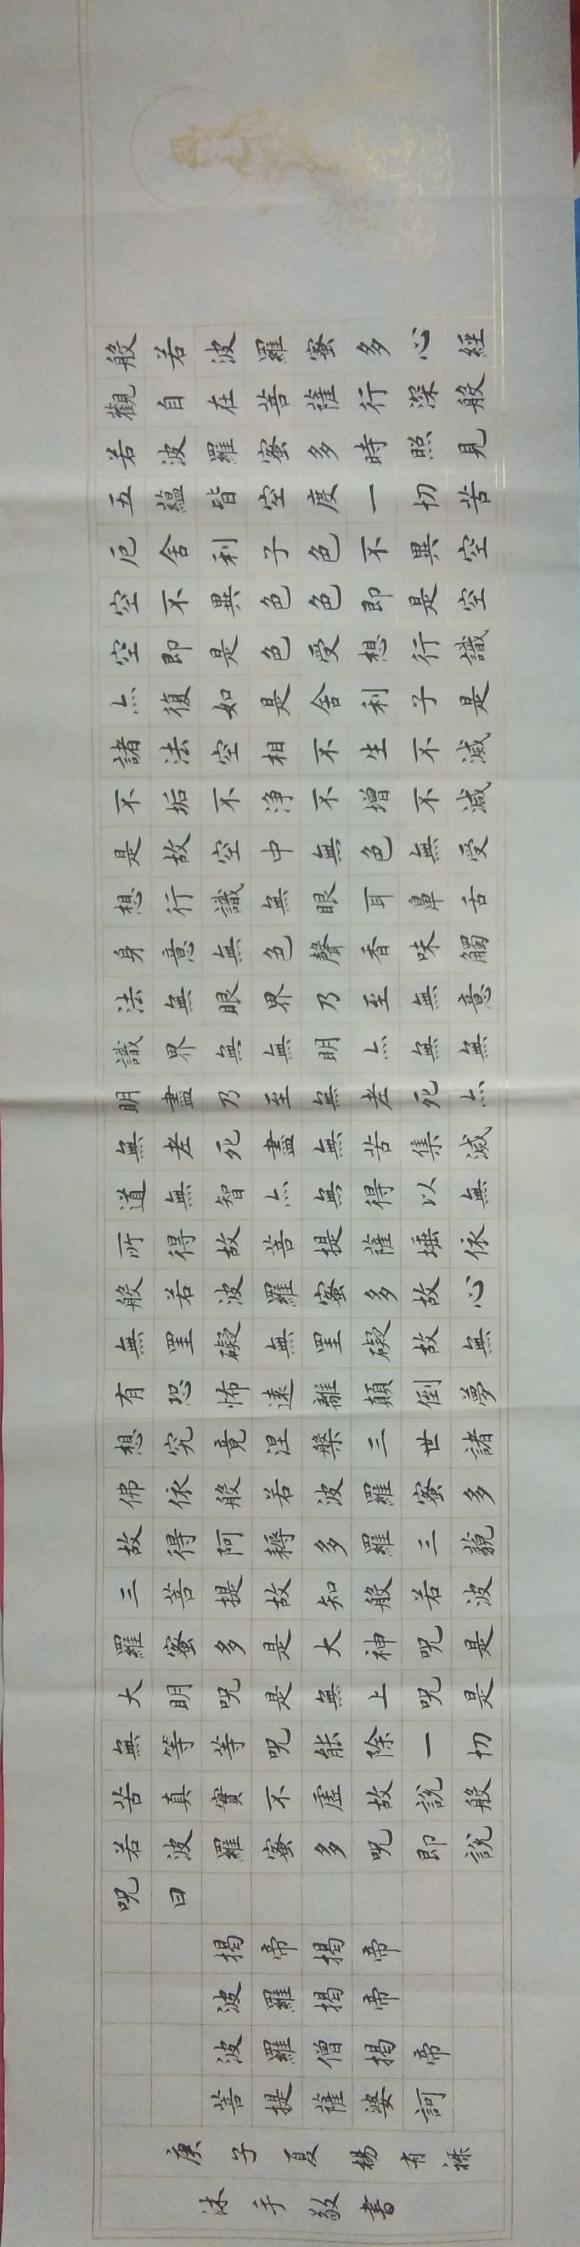 般若波羅蜜多心經
觀自在菩薩行深般
若波羅蜜多時照見
五蘊皆空度一切苦
厄舍利子色不異空
空不異色色即是空
空即是色受想行識
亦復如是舍利子是
諸法空相不生不滅
不垢不浄不增不減
是故空中無色無受
想行識無眼耳鼻舌
身意無色聲香味觸
法無眼界乃至無意
識界無無明亦無無
明盡乃至無老死亦
無老死盡無苦集滅
道無智亦無得以無
所得故菩提薩埵依
般若波羅蜜多故心
無罣礙無罣礙故無
有恐怖遠離顛倒夢
想究竟涅槃三世諸
佛依般若波羅蜜多
故得阿耨多羅三藐
三菩提故知般若波
羅蜜多是大神呪是
大明呪是無上呪是
無等等呪能除一切
苦真實不虛故說般
若波羅蜜多呪即說
呪曰
揭帝揭帝
波羅揭帝
波羅僧揭帝
菩提薩婆訶
庚子夏楊有
沐手敬書